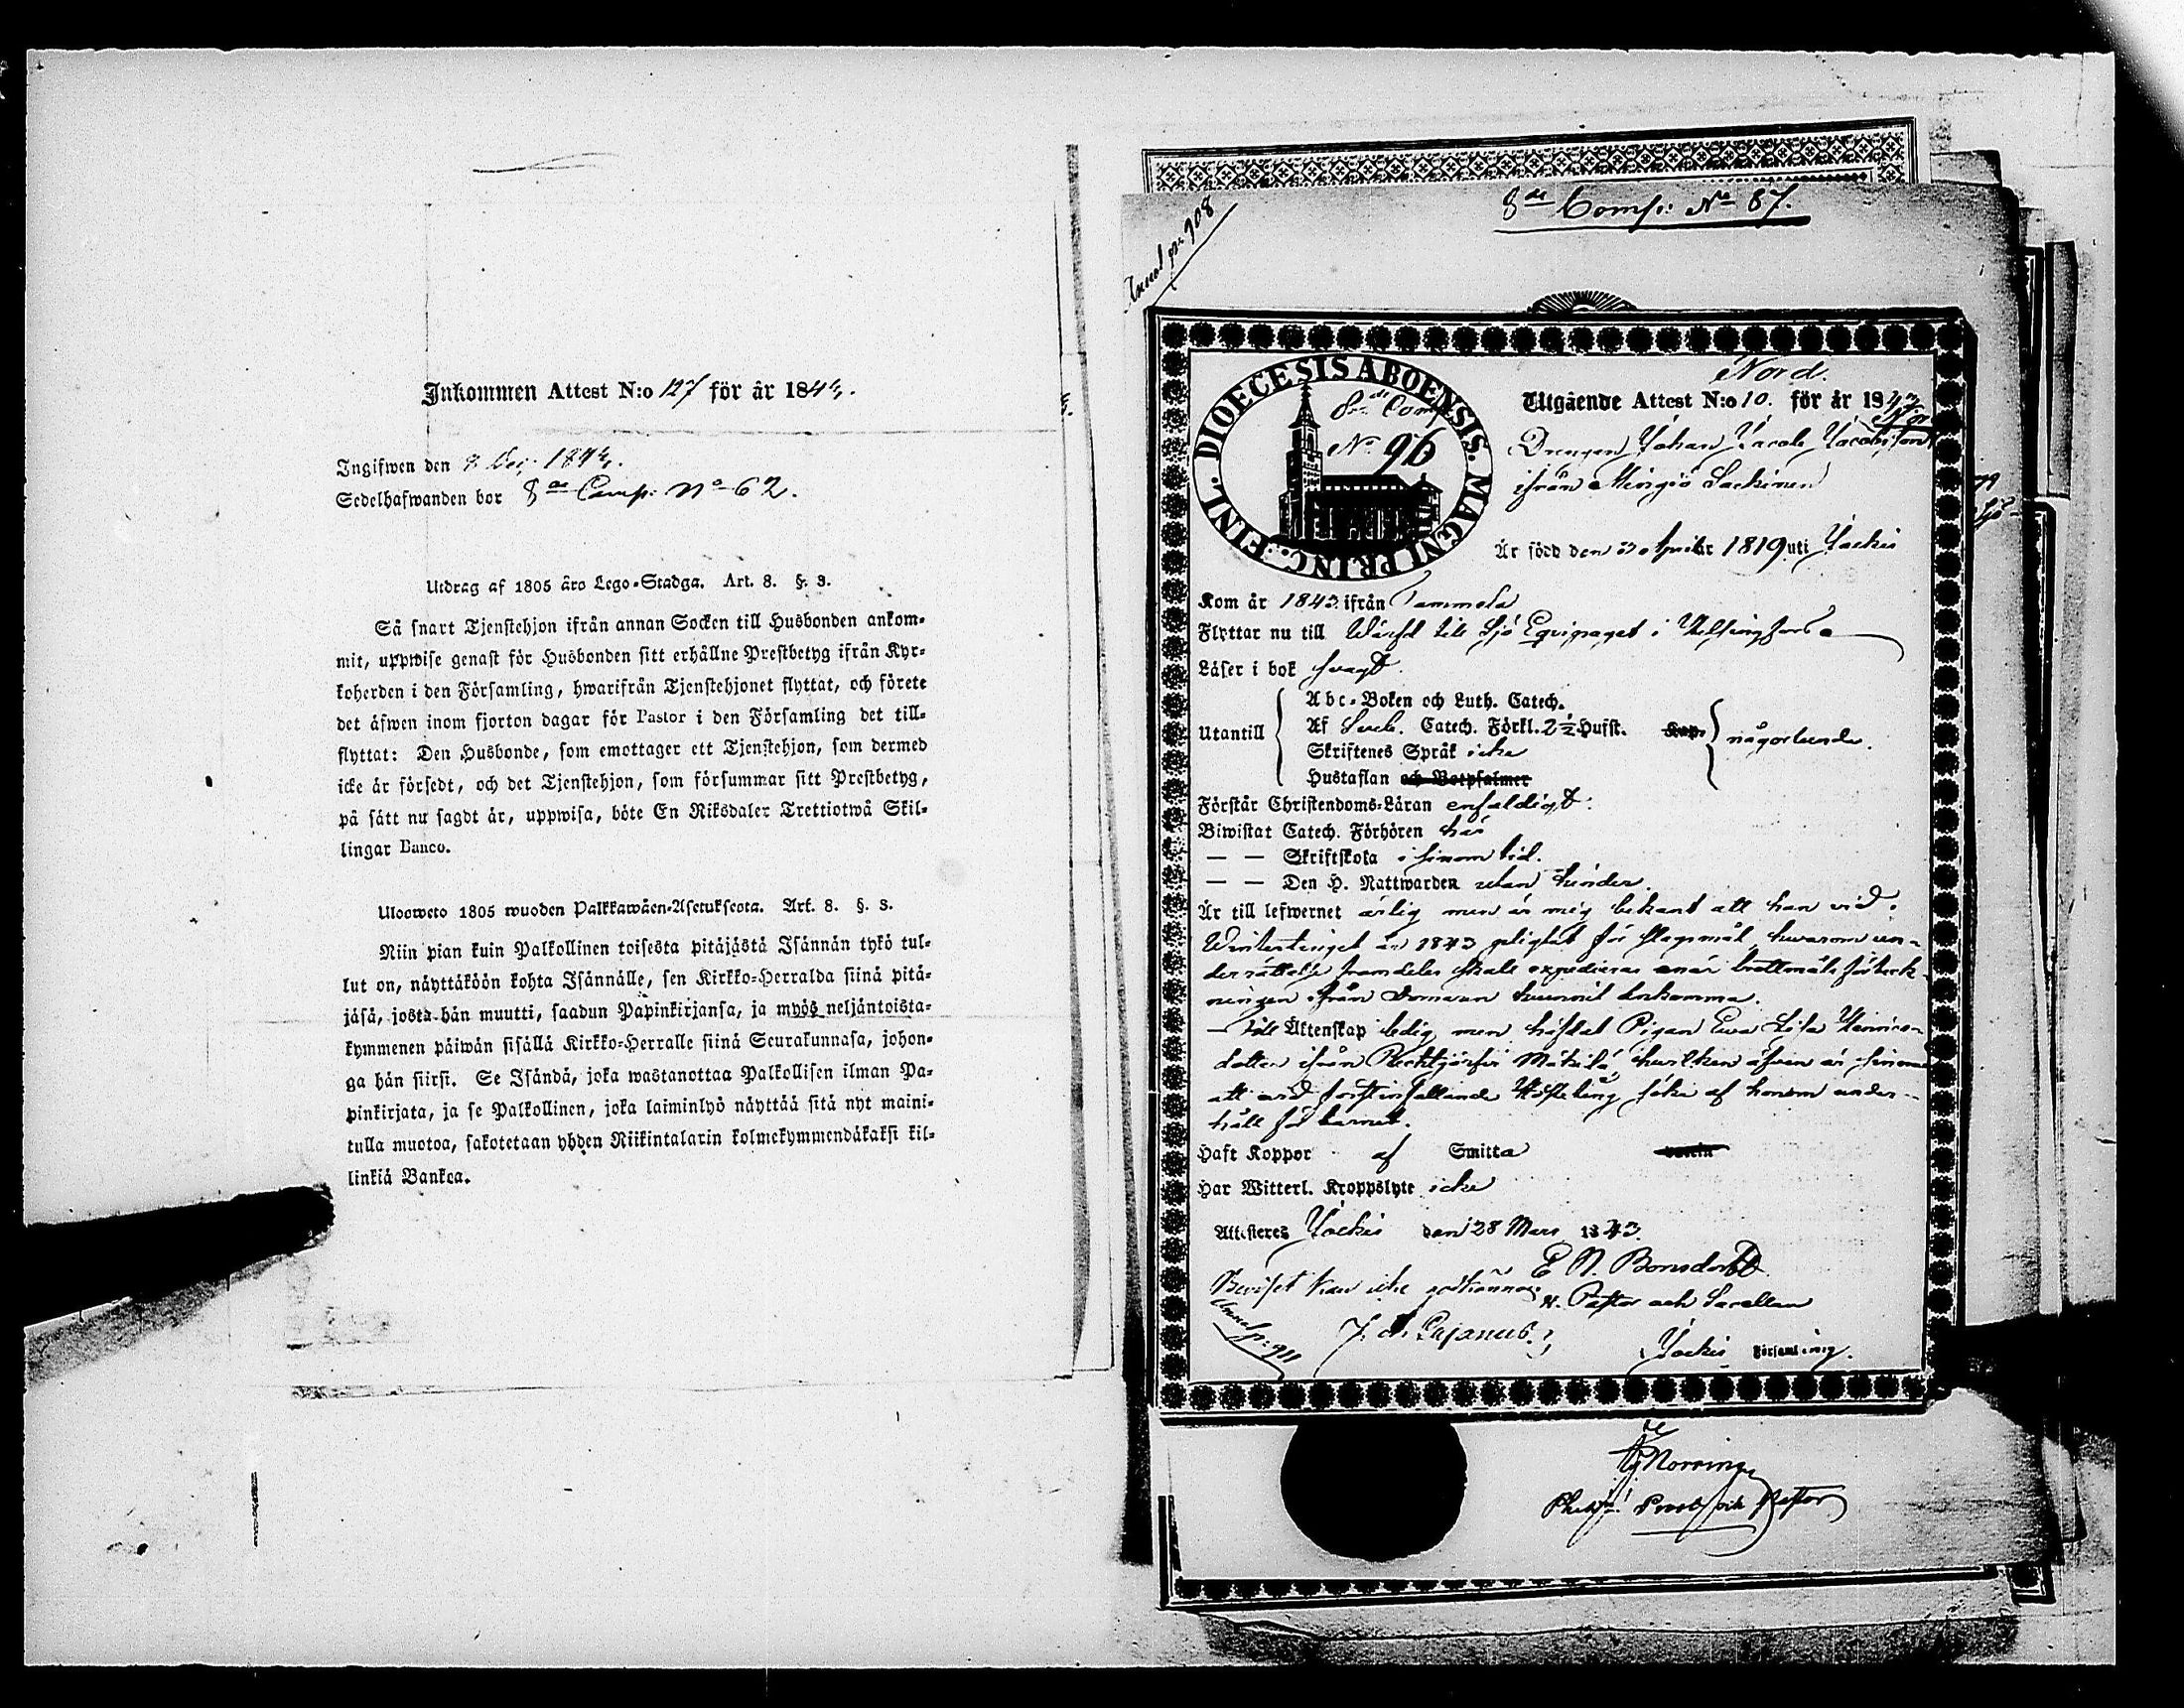 Inkommen Attest N:o 127 för år 1844.
Ingifwen den 1844.
Sedelhafwanden bor 8de Comp: No 62.
Utdrag af 1805 års Lego-Stadga. Art. 8. §. 3.
Så snart Tjenstehjon ifrån annan Socken till Husbonden ankom-
mit, uppwise genast för Husbonden sitt erhållne Prestbetyg ifrån Kyr-
koherden i den Församling, hwarifrån Tjenstehjonet flyttat, och förete
det äfwen inom fjorton dagar för Pastor i den Församling det till-
flyttat: Den Husbonde, som emottager ett Tjenstehjon, som dermed
icke är försedt, och det Tjenstehjon, som försummar sitt Prestbetyg,
på sätt nu sagdt är, uppwisa, böte En Riksdaler Trettiotwå Skil-
lingar Banco.
Ulosweto 1805 wuoden Palkkawäen-Asetuksesta. Art. 8. §. 3.
Niin pian kuin Palkollinen toisesta pitäjästä Isännän tykö tul-
lut on, näyttäköön kohta Isännälle, sen Kirkko-Herralda siinä pitä-
jäsä, josta hän muutti, saadun Papinkirjansa, ja myös neljäntoista-
kymmenen päiwän sisällä Kirkko-Herralle siinä Seurakunnasa, johon-
ga hän siirsi. Se Isändä, joka wastanottaa Palkollisen ilman Pa-
pinkirjata, ja se Palkollinen, joka laiminlyö näyttää sitä nyt maini-
tulla muotoa, sakotetaan yhden Riikintalarin kolmekymmendäkaksi kil-
linkiä Bankea.
8de Comp: No 87.
908
DIOECESIS ABOENSIS. MAGNI PRINC. FINL.
8de Comp
No 96
Nord.
Utgående Attest N:o 10. för år 1843
Drengen Johan Jacob Jacobsson
ifrån Mingiö Lackinen
Är född den 30 April år 1819 uti Jockis
Kom år 1843 ifrån Tammela
Flyttar nu till Wärfd till Sjö Equipaget i Helsingfors
Läser i bok svagt
Utantill
Abc-Boken och Luth. Catech.
Af Sveb. Catech. Förkl. 2½ Hufst. Kap. någorlunda.
Skriftenes Språk icke
Hustaflan och Botpsalmer
Förstår Christendoms-Läran enfaldigt.
Biwistat Catech. Förhören här
— — Skriftskola i sinom tid.
— — Den H. Nattwarden utan hinder.
Är till lefwernet ärlig men är mig bekant att han vid
Wintertinget år 1843 för slagsmål, hwarom un-
derrättelse framdeles skall expedieras när
ningen ifrån Domaren hunnit ankomma.
Till Äktenskap ledig, men häfdat Pigan Eva Lisa Henrics-
dotter ifrån Mattila, hwilken äfwen är sinnad
att vid förstinfallande Hösteting söka af honom under-
håll för barnet.
Haft Koppor af Smitta vaccin
Har Witterl. Kroppslyte icke
Attesteras Jockis den 28 Mars 1843.
E N. Bonsdorff
v. Pastor och Sacellan
Beviset kan icke godkännas;
J. ch. Cajanus.
911
Jockis Församling.
Norring
Prost och Pastor